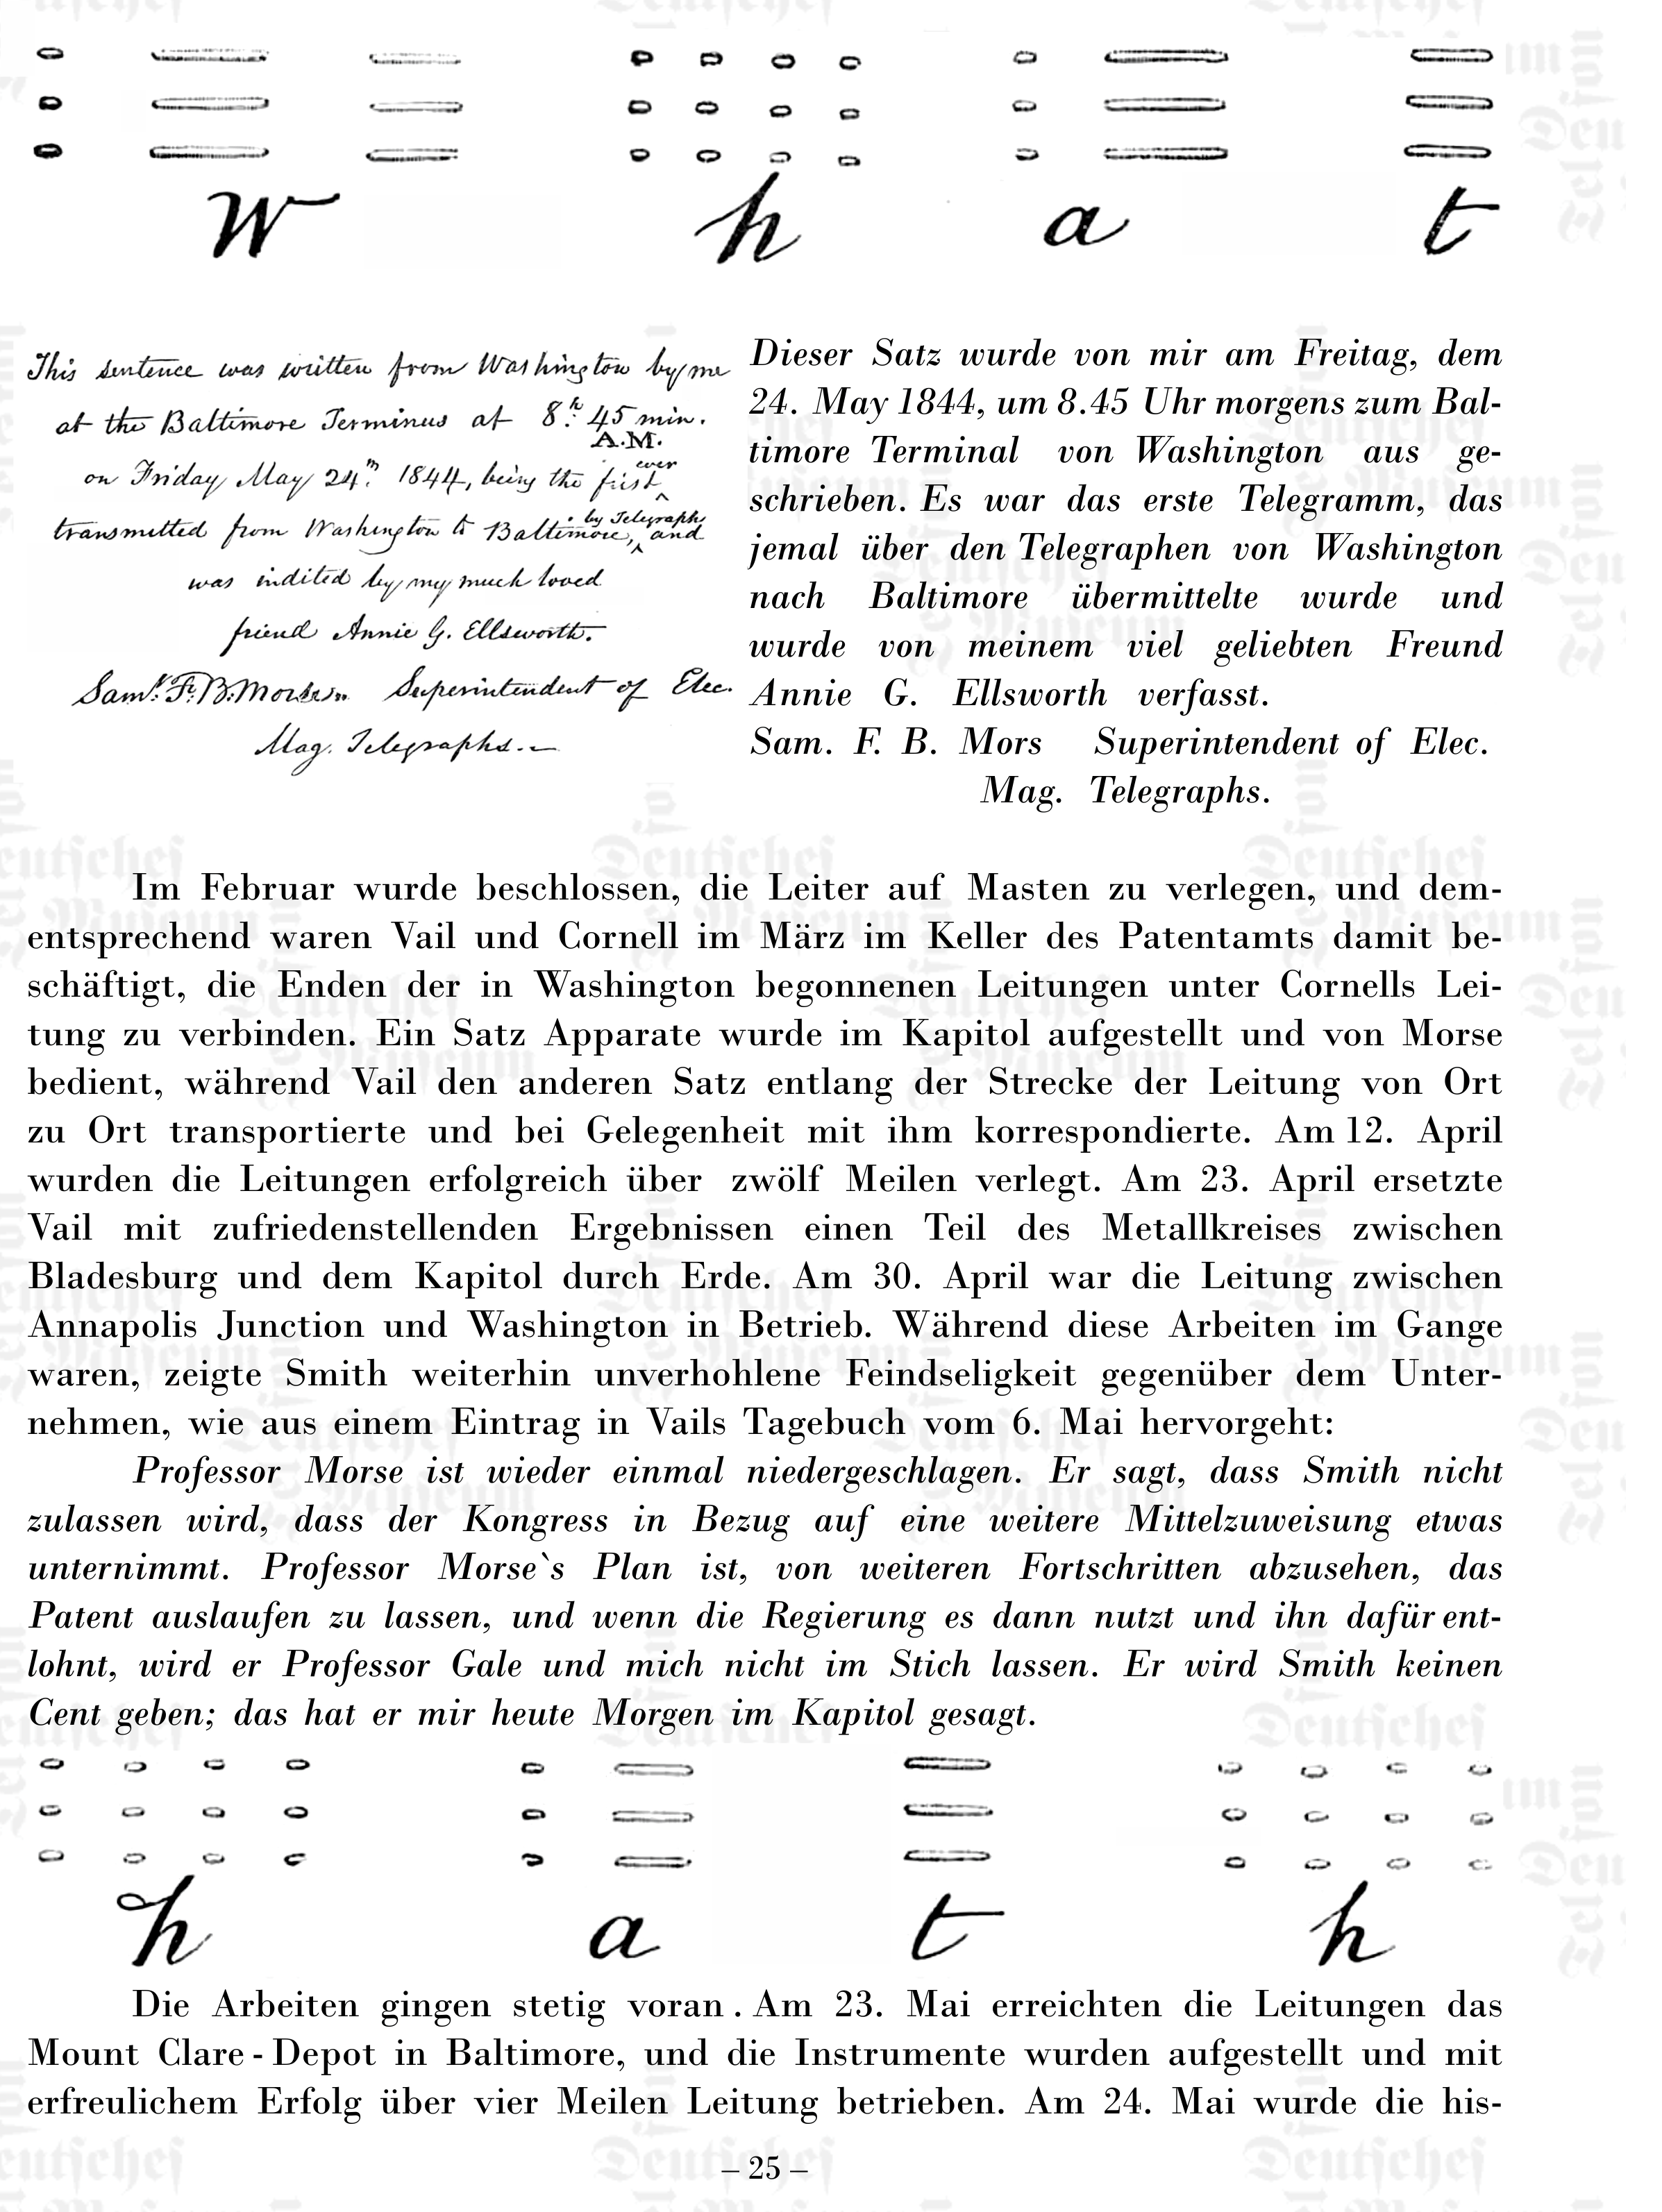 W h a t
This sentence was written from Washington by me
at the Baltimore Terminus at 8.h 45 min.
A.M.
on Friday May 24.th 1844, being the first ever
transmitted from Washington to Baltimore, by Telegraph and
was indited by my much loved
friend Annie G. Ellsworth.
Saml. F. B. Morse. Superintendent of Elec.
Mag. Telegraphs.
Dieser Satz wurde von mir am Freitag, dem
24. May 1844, um 8.45 Uhr morgens zum Bal-
timore Terminal von Washington aus ge-
schrieben. Es war das erste Telegramm, das
jemal über den Telegraphen von Washington
nach Baltimore übermittelte wurde und
wurde von meinem viel geliebten Freund
Annie G. Ellsworth verfasst.
Sam. F. B. Mors Superintendent of Elec.
Mag. Telegraphs.
Im Februar wurde beschlossen, die Leiter auf Masten zu verlegen, und dem-
entsprechend waren Vail und Cornell im März im Keller des Patentamts damit be-
schäftigt, die Enden der in Washington begonnenen Leitungen unter Cornells Lei-
tung zu verbinden. Ein Satz Apparate wurde im Kapitol aufgestellt und von Morse
bedient, während Vail den anderen Satz entlang der Strecke der Leitung von Ort
zu Ort transportierte und bei Gelegenheit mit ihm korrespondierte. Am 12. April
wurden die Leitungen erfolgreich über zwölf Meilen verlegt. Am 23. April ersetzte
Vail mit zufriedenstellenden Ergebnissen einen Teil des Metallkreises zwischen
Bladesburg und dem Kapitol durch Erde. Am 30. April war die Leitung zwischen
Annapolis Junction und Washington in Betrieb. Während diese Arbeiten im Gange
waren, zeigte Smith weiterhin unverhohlene Feindseligkeit gegenüber dem Unter-
nehmen, wie aus einem Eintrag in Vails Tagebuch vom 6. Mai hervorgeht:
Professor Morse ist wieder einmal niedergeschlagen. Er sagt, dass Smith nicht
zulassen wird, dass der Kongress in Bezug auf eine weitere Mittelzuweisung etwas
unternimmt. Professor Morse`s Plan ist, von weiteren Fortschritten abzusehen, das
Patent auslaufen zu lassen, und wenn die Regierung es dann nutzt und ihn dafür ent-
lohnt, wird er Professor Gale und mich nicht im Stich lassen. Er wird Smith keinen
Cent geben; das hat er mir heute Morgen im Kapitol gesagt.
h a t h
Die Arbeiten gingen stetig voran . Am 23. Mai erreichten die Leitungen das
Mount Clare - Depot in Baltimore, und die Instrumente wurden aufgestellt und mit
erfreulichem Erfolg über vier Meilen Leitung betrieben. Am 24. Mai wurde die his-
– 25 –